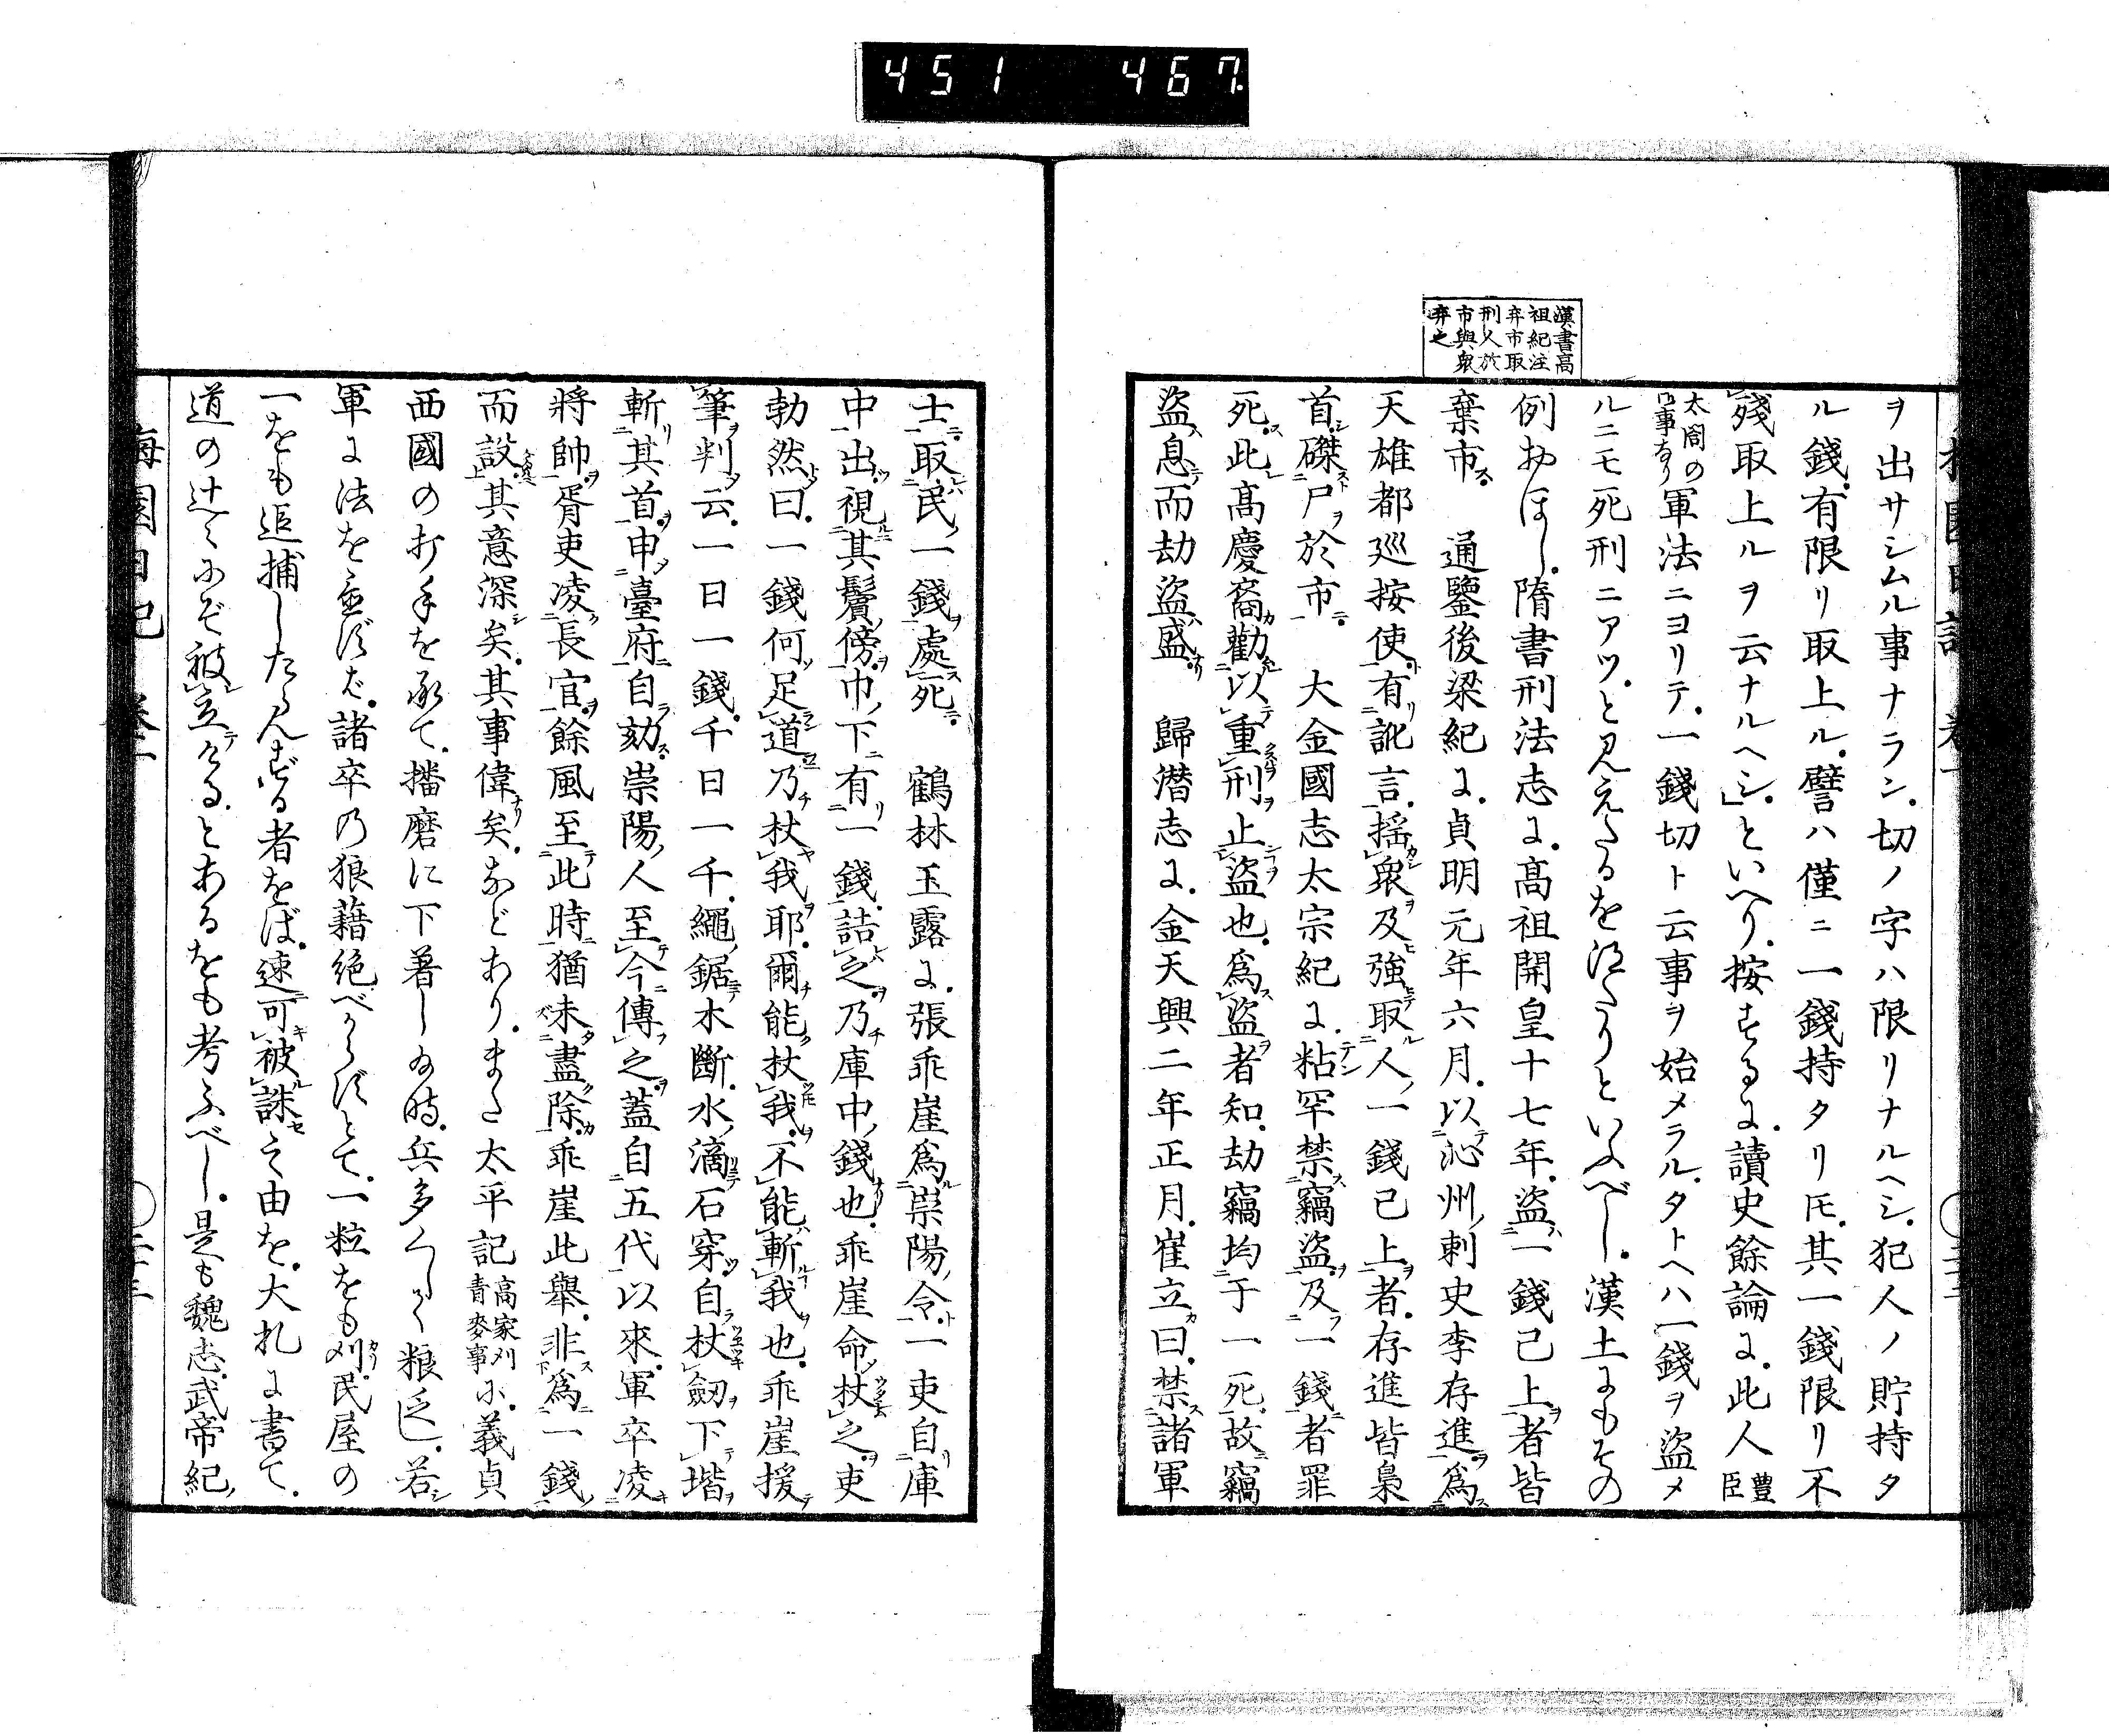 451 467
漢書高
祖紀注
弃市取
刑人於
市與衆
弃之
ヲ出サシムル事ナラン切ノ字ハ限リナルヘシ犯人ノ貯持タ
ル錢有限リ取上ル譬ハ僅ニ一錢持タリ𪜈其一錢限リ不
殘取上ルヲ云ナルヘシといへり按するに讀史餘論に此人豊臣
太閤の事なり軍法ニヨリテ一錢切ト云事ヲ始メラルタトヘハ一錢ヲ盗メ
ルニモ死刑ニアツと見えたるを得たりといふべし漢土にもその
例おほし隋書刑法志に髙祖開皇十七年盗一錢已上者皆
棄市 通鑒後梁紀に貞明元年六月以沁州刺史李存進爲
天雄都巡按使有訛言揺衆及強取人一錢已上者存進皆梟
首磔尸於市 大金國志太宗紀に粘罕禁竊盗及一錢者罪
死此髙慶裔勸以重刑止盗也爲盗者知劫竊均于一死故竊
盗息而劫盗盛 歸潜志に金天興二年正月崔立曰禁諸軍
士取民一錢處死 鶴林玉露に張乖崖爲崇陽令一吏自庫
中出視其鬢傍巾下有一錢詰之乃庫中錢也乖崖命杖之吏
勃然曰一錢何足道乃杖我耶爾能杖我不能斬我也乖崖援
筆判云一日一錢千日一千繩鋸木斷水滴石穿自杖劔下堦
斬其首申臺府自劾崇陽人至今傳之蓋自五代以來軍卒凌
將帥胥吏凌長官餘風至此時猶未盡除乖崖此舉非爲一錢
而設其意深矣其事偉矣などありまた太平記高家刈青麥事に義貞
西國の打手を承て播磨に下著し給時兵多くして粮乏若
軍に法を置ずば諸卒の狼藉絶べからずとて一粒をも刈民屋の
一をも追捕したらんずる者をば速可被誅之由を大札に書て
道の辻〱にぞ被立ける とあるをも考ふべし是も魏志武帝紀
梅園日記 卷一